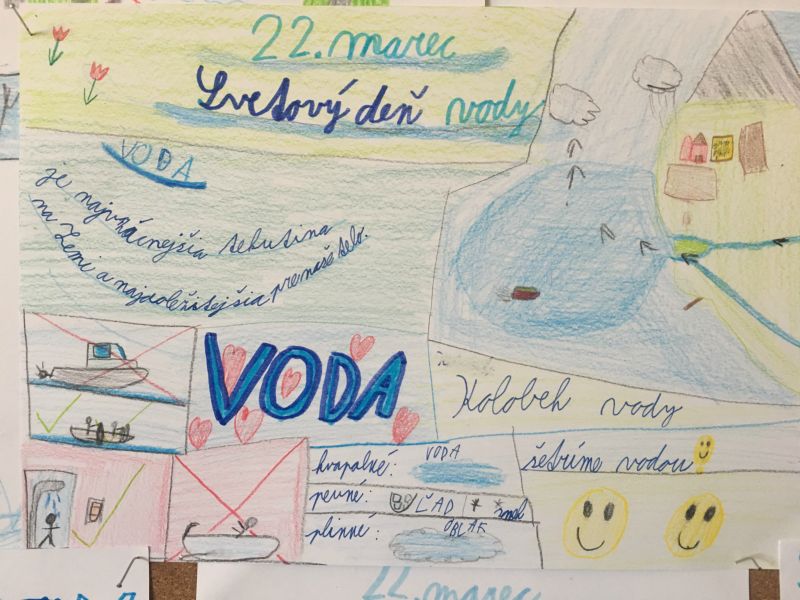 22. marec
Svetový deň vody
VODA
je najvzácnejšia tekutina
na Zemi a najdôležitejšia pre naše telo.
VODA
Kolobeh vody
kvapalné: VODA
pevné: ĽAD
plinné: OBLAK
šetríme vodou
22. marec